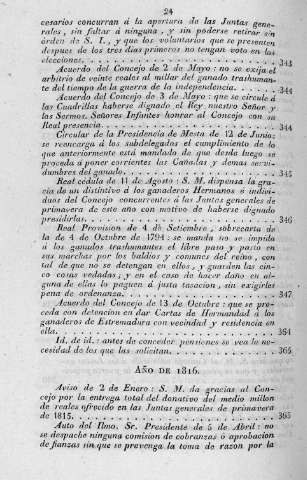 24
cesarios concurran á la apertura de las Juntas gene-
rales, sin faltar á ninguna, y sin poderse retirar sin
órden de S. I., y que los voluntarios que se presenten
despues de los tres dias primeros no tengan voto en las
elecciones. 343
Acuerdo del Concejo de 2 de Mayo: no se exija el
arbitrio de veinte reales al millar del ganado trashuman-
te del tiempo de la guerra de la independencia. 344
Acuerdo del Concejo de 3 de Mayo: que se circule á
las Cuadrillas haberse dignado el Rey nuestro Señor y
los Sermos. Señores Infantes honrar al Concejo con su
Real presencia. 344
Circular de la Presidencia de Mesta de 12 de Junio:
se reencarga á los subdelegados el cumplimiento de lo
que anteriormente está mandado de que desde luego se
proceda á poner corrientes las Cañadas y demas servi-
dumbres del ganado. 345
Real cédula de 11 de Agosto: S. M. dispensa la gra-
cia de un distintivo á los ganaderos Hermanos é indivi-
duos del Concejo concurrentes á las Juntas generales de
primavera de este año con motivo de haberse dignado
presidirlas. 346
Real Provision de 4 de Setiembre, sobrecarta de
la de 4 de Octubre de 1794: se manda no se impida
á los ganados trashumantes el libre paso y pasto en
sus marchas por los baldíos y comunes del reino, con
tal de que no se detengan en ellos, y guarden las cin-
co cosas vedadas; y en el caso de hacer daño en al-
guna de ellas lo paguen á justa tasacion, sin exigirles
pena de ordenanza. 347
Acuerdo del Concejo de 13 de Octubre: que se pro-
ceda con detencion en dar Cartas de Hermandad á los
ganaderos de Estremadura con vecindad y residencia en
ella. 364
Id. de id.: antes de conceder pensiones se vea la ne-
cesidad de los que las solicitan. 365
AÑO DE 1816.
Aviso de 2 de Enero: S. M. da gracias al Con-
cejo por la entrega total del donativo del medio millon
de reales ofrecido en las Juntas generales de primavera
de 1815. 365
Auto del Ilmo. Sr. Presidente de 5 de Abril: no
se despache ninguna comision de cobranzas ó aprobacion
de fianzas sin que se prevenga la toma de razon por la